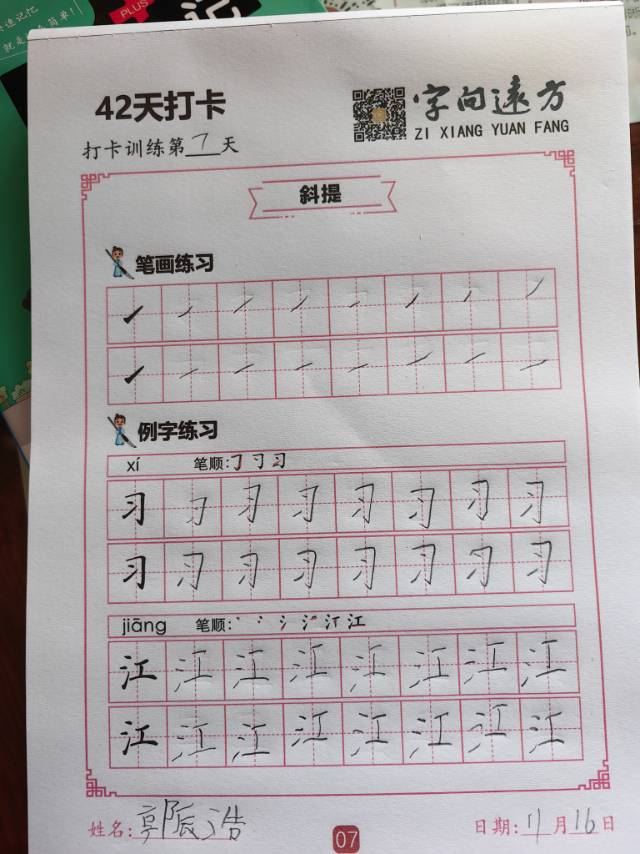 PLUS
42天打卡
字向遠方
ZI XIANG YUAN FANG
打卡训练第7天
斜提
笔画练习
例字练习
xí 笔顺:
习习习习习习习习
习习习习习习习习
jiāng 笔顺:
江江江江江江江江
江江江江江江江江
姓名:郭辰浩
07
日期:11月16日